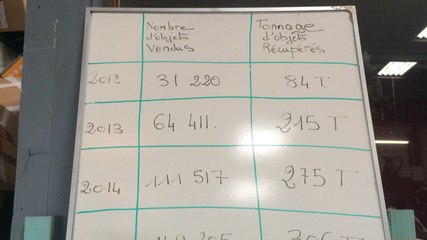 Nombre d'objets Vendus
Tonnage d'objets Récupérés
2012 31 220 84 T
2013 64 411. 215 T
2014 111 517 275 T